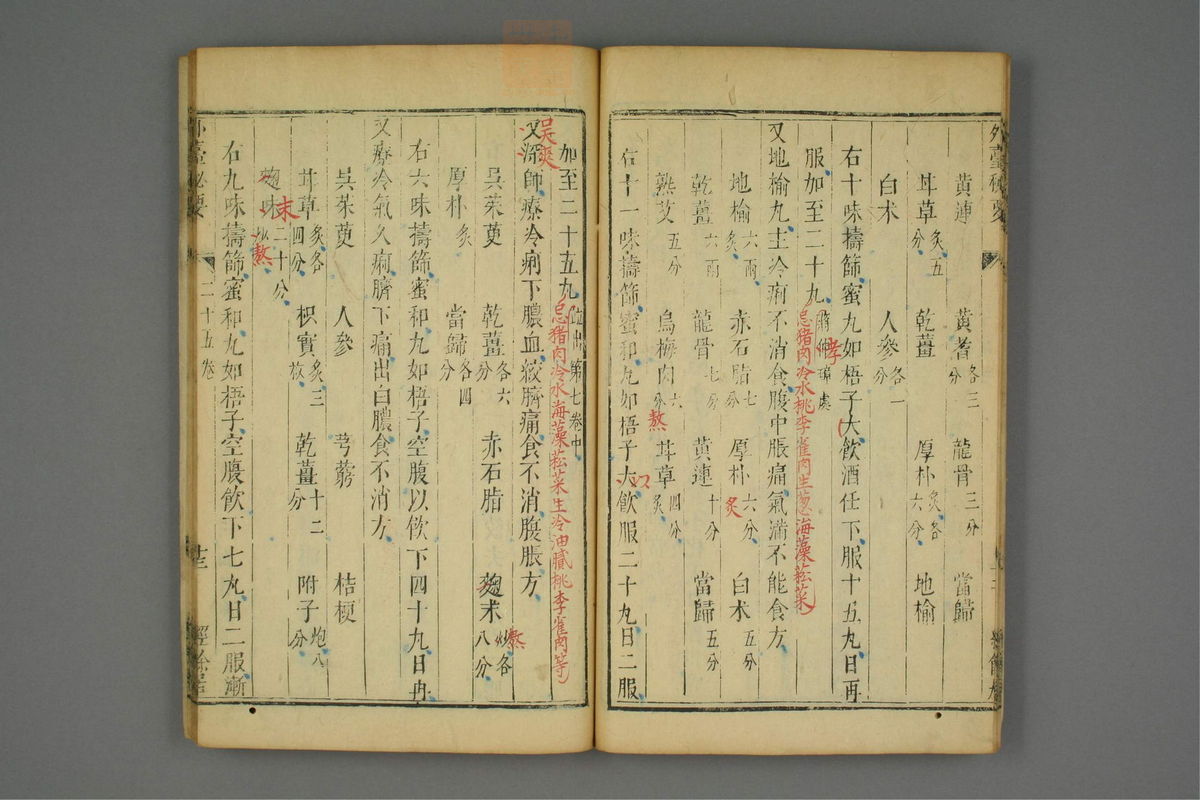 黃連 黃耆各三分 龍骨三分 當歸
甘草炙五分 乾薑 厚朴炙各六分 地榆
白朮 人參各一分
右十味擣篩蜜丸如梧子大飲酒任下服十五丸日再
服加至二十九 忌猪肉冷水桃李雀肉生葱海藻菘菜
又地榆丸主冷痢不消食腹中脹痛氣滿不能食方
地榆六兩炙 赤石脂七分 厚朴六分炙 白朮五分
乾薑六兩 龍骨七分 黃連十分 當歸五分
熟艾五分 烏梅肉六分熬 甘草四分炙
右十一味擣篩蜜和丸如梧子大如飲服二十丸日二服
加至二十五丸並出第七卷中 忌猪肉冷水海藻菘菜生冷油膩桃李雀肉等
吳英
又深師療冷痢下膿血絞臍痛食不消腹脹方
吳茱萸 乾薑各六分 赤石脂 麴末炒各八分 熬
厚朴炙 當歸各四分
右六味擣篩蜜和丸如梧子空腹以飲下四十丸日再
又療冷氣久痢臍下痛出白膿食不消方
吳茱萸 人參 芎藭 桔梗
甘草炙各四分 枳實炙三枚 乾薑十二分 附子炮八分
麴末二十分炒 熬
右九味擣篩蜜和丸如梧子空腹飲下七丸日二服漸
外臺秘要 二十五卷 經餘居